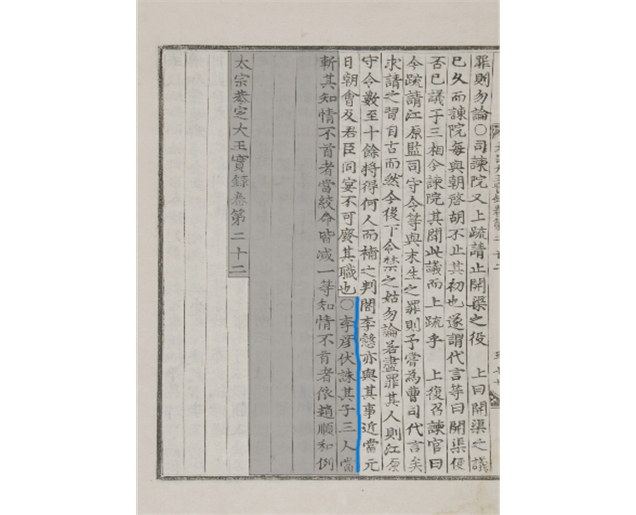 罪則勿論○司諫院又上疏請止開渠之役　上曰開渠之議
已久而諫院每與朝啓胡不止其初也遂謂代言等曰開渠便
否已議于三相今諫院其聞此議而上疏乎　上復召諫官曰
今疏請江原監司守令等與末生之罪則予嘗爲曹司代言矣
求請之習自古而然今後下令禁之姑勿論若盡罪其人則江原
守令數至十餘將得何人而補之判閣李慤亦與其事近當元
日朝會及君臣同宴不可廢其職也○李彦伏誅其子三人當
斬其知情不首者當絞命皆减一等知情不首者依趙順和例
太宗恭定大王實錄卷第二十二